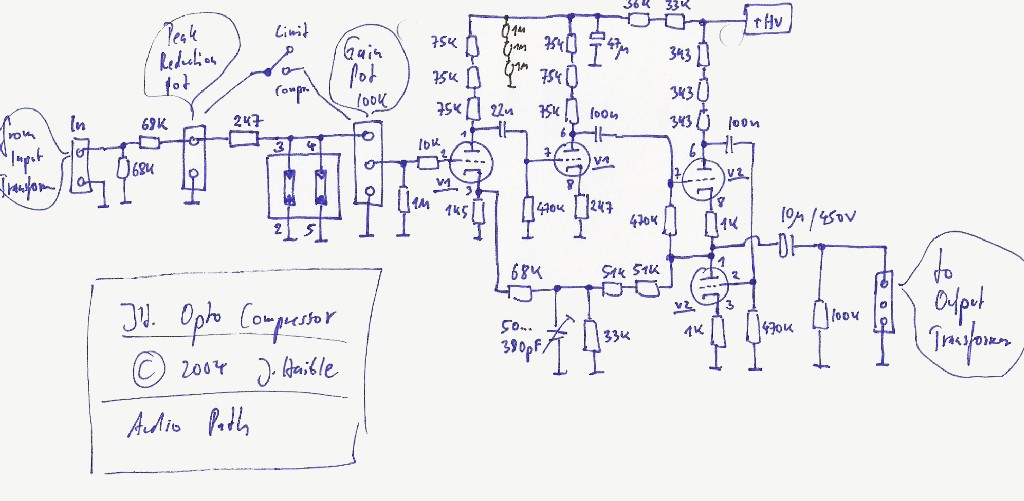 Peak
Reduction
Pot
Limit
Compr.
Gain
Pot
100K
From
Input
Transform
In
68K
68K
2K7
3
4
2
5
10K
2
1M
75K
75K
75K
1M
1M
1M
75K
75K
75K
47µ
36K
33K
+HV
3K3
3K3
3K3
22n
1
V1
3
1K5
470K
100n
6
7
V1
8
2K7
100n
6
7
V2
8
1K
470K
10µ/450V
1
2
V2
3
1K
470K
100K
68K
51K
51K
50...
380pF
33K
to
Output
Transformer
JH. Opto Compressor
© 2004 J. Haible
Audio Path